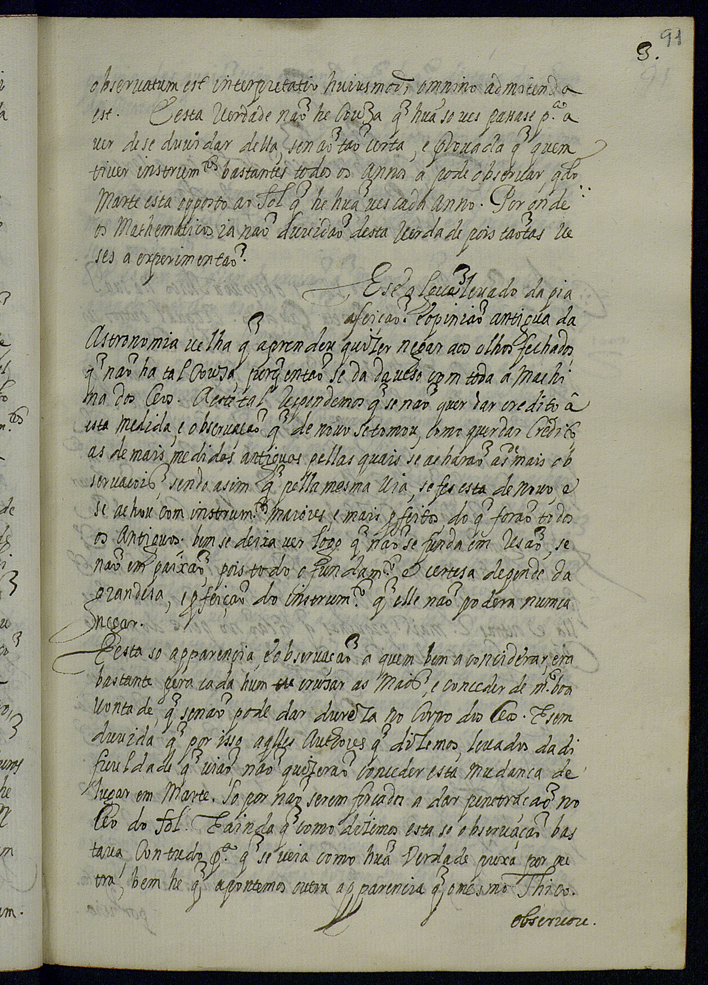 91
3.
observatum est interpretatio huiusmodi omnino admittenda
est. E esta verdade não he Couza q̃ hũa so ves pasase p.ª a
ver de se duvidar della, senão tão certa, e provada q̃ quem
tiver instrum.tos bastantes todos os Annos a pode observar qdo
Marte esta opposto ao Sol q̃ he hũa ves cada anno. Por onde
os Mathematicos ia não duvidão desta verdade pois tantas ve
ses a experimentão.
E se alguẽ levado da pia
afeição, e opinião antigua da
Astronomia velha q̃ aprendeu quiser negar aos olhos fechados
q̃ não ha tal Couza, porq̃ então se da da aveso com toda a Machi
na dos Ceos. A este tal respondemos q̃ se não quer dar credito â
esta medida, e observação q̃ de novo se tomou, como quer dar credito
as demais medidas antiguas pellas quais se acharão as mais ob
servações, sendo asim q̃ pella mesma via, se fes esta de novo e
se achou com instrum.tos maiores e mais pfeitos do q̃ forão todos
os Antiguos. bem se deixa ver logo q̃ não se funda em rezão, se
não em paixão, pois todo o fundam.to e certesa depende da
grandeza, e pfeição do instrum.to q̃ elle não podera nunca
negar.
E esta so apparençia, e observação a quem bem a considerar, era
bastante pera cada hum cruzar as Mãos, e conceder de m.to boa
vontade, q̃ senão pode dar dureza no Corpo do Ceo. E sem
duvida q̃ por isso aqlles Authores q̃ dizemos, levados da di
ficuldade q̃ vião não quiserão conceder esta mudança de
lugar em Marte. So por não serem forçados a dar penetração no
Ceo do Sol. E ainda q̃ como dizemos esta so observação bas
tava, Contudo p.ª q̃ se veia como hũa Verdade puxa por ou
tra, bem he q̃ apontemos outra apparencia q̃ o mesmo Thico.
observou.